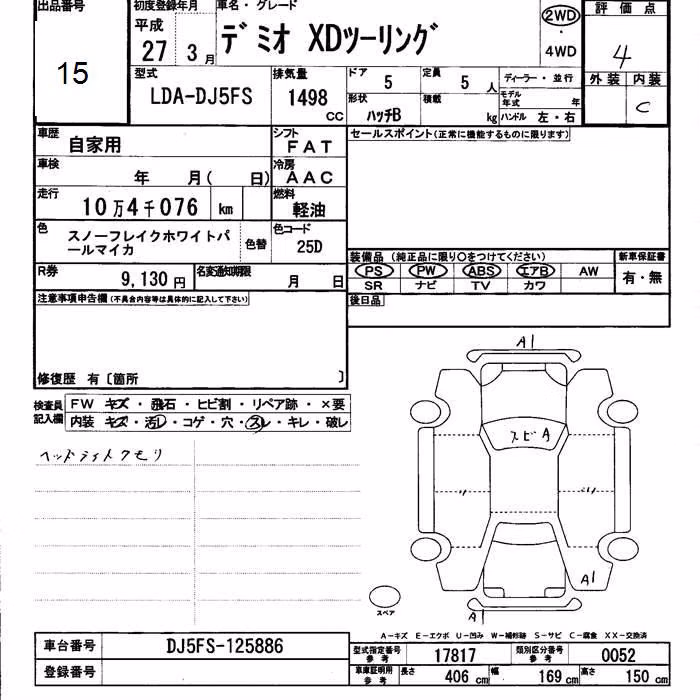 出品番号
15
初度登録年月
平成
27年 3月
車名・グレード
デミオ XDツーリング
2WD
・
4WD
評価点
4
外装 内装
C
型式
LDA-DJ5FS
排気量
1498
CC
ドア
5
定員
5人
ディーラー・並行
モデル年式 年
形状
ハッチB
積載
kg
ハンドル 左・右
車歴
自家用
シフト
FAT
セールスポイント(正常に機能するものに限ります)
車検
年 月( 日)
冷房
AAC
走行
10万4千076 km
燃料
軽油
色
スノーフレイクホワイトパ
ールマイカ
色替
色コード
25D
装備品(純正品に限り○をつけてください)
新車保証書
PS PW ABS エアB AW
有・無
SR ナビ TV カワ
R券
9,130円
名変通知期限
月 日
後日品
注意事項申告欄(不具合内容等は具体的に記入して下さい)
修復歴 有〔箇所 〕
検査員
記入欄
FW キズ・飛石・ヒビ割・リペア跡・×要
内装 キズ・汚レ・コゲ・穴・スレ・キレ・破レ
ヘッドライトクモリ
A1
スビ A
A1
A1
スペア
A-キズ E-エクボ U-凹み W-補修跡 S-サビ C-腐食 XX-交換済
車台番号
DJ5FS-125886
登録番号
型式指定番号
参考
17817
類別区分番号
参考
0052
車庫証明用
参考
長さ
406 cm
幅
169 cm
高さ
150 cm